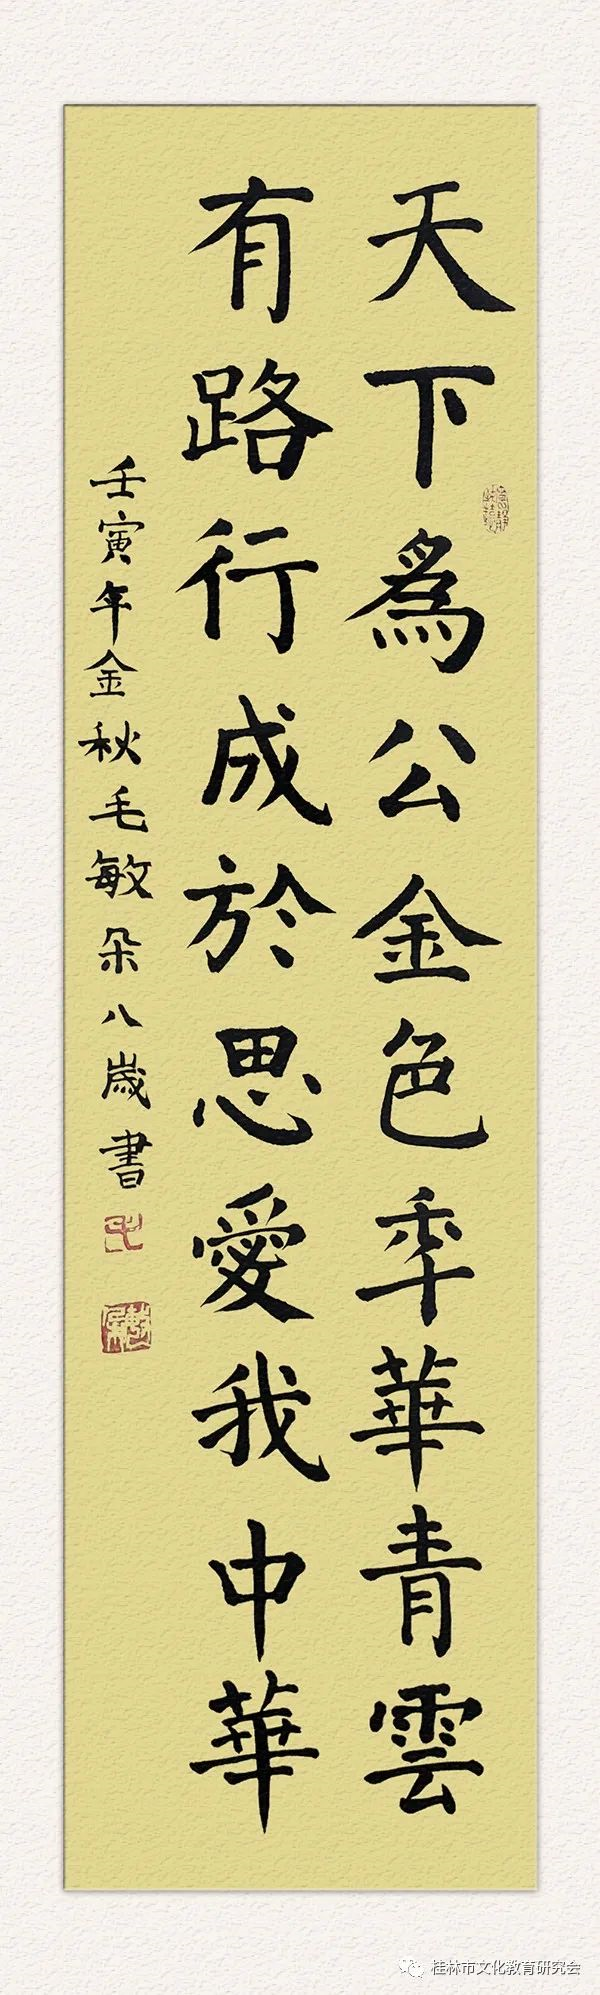 天下為公金色年華青雲
有路行成於思愛我中華
壬寅年金秋毛敏朵八歲書
桂林市文化教育研究会